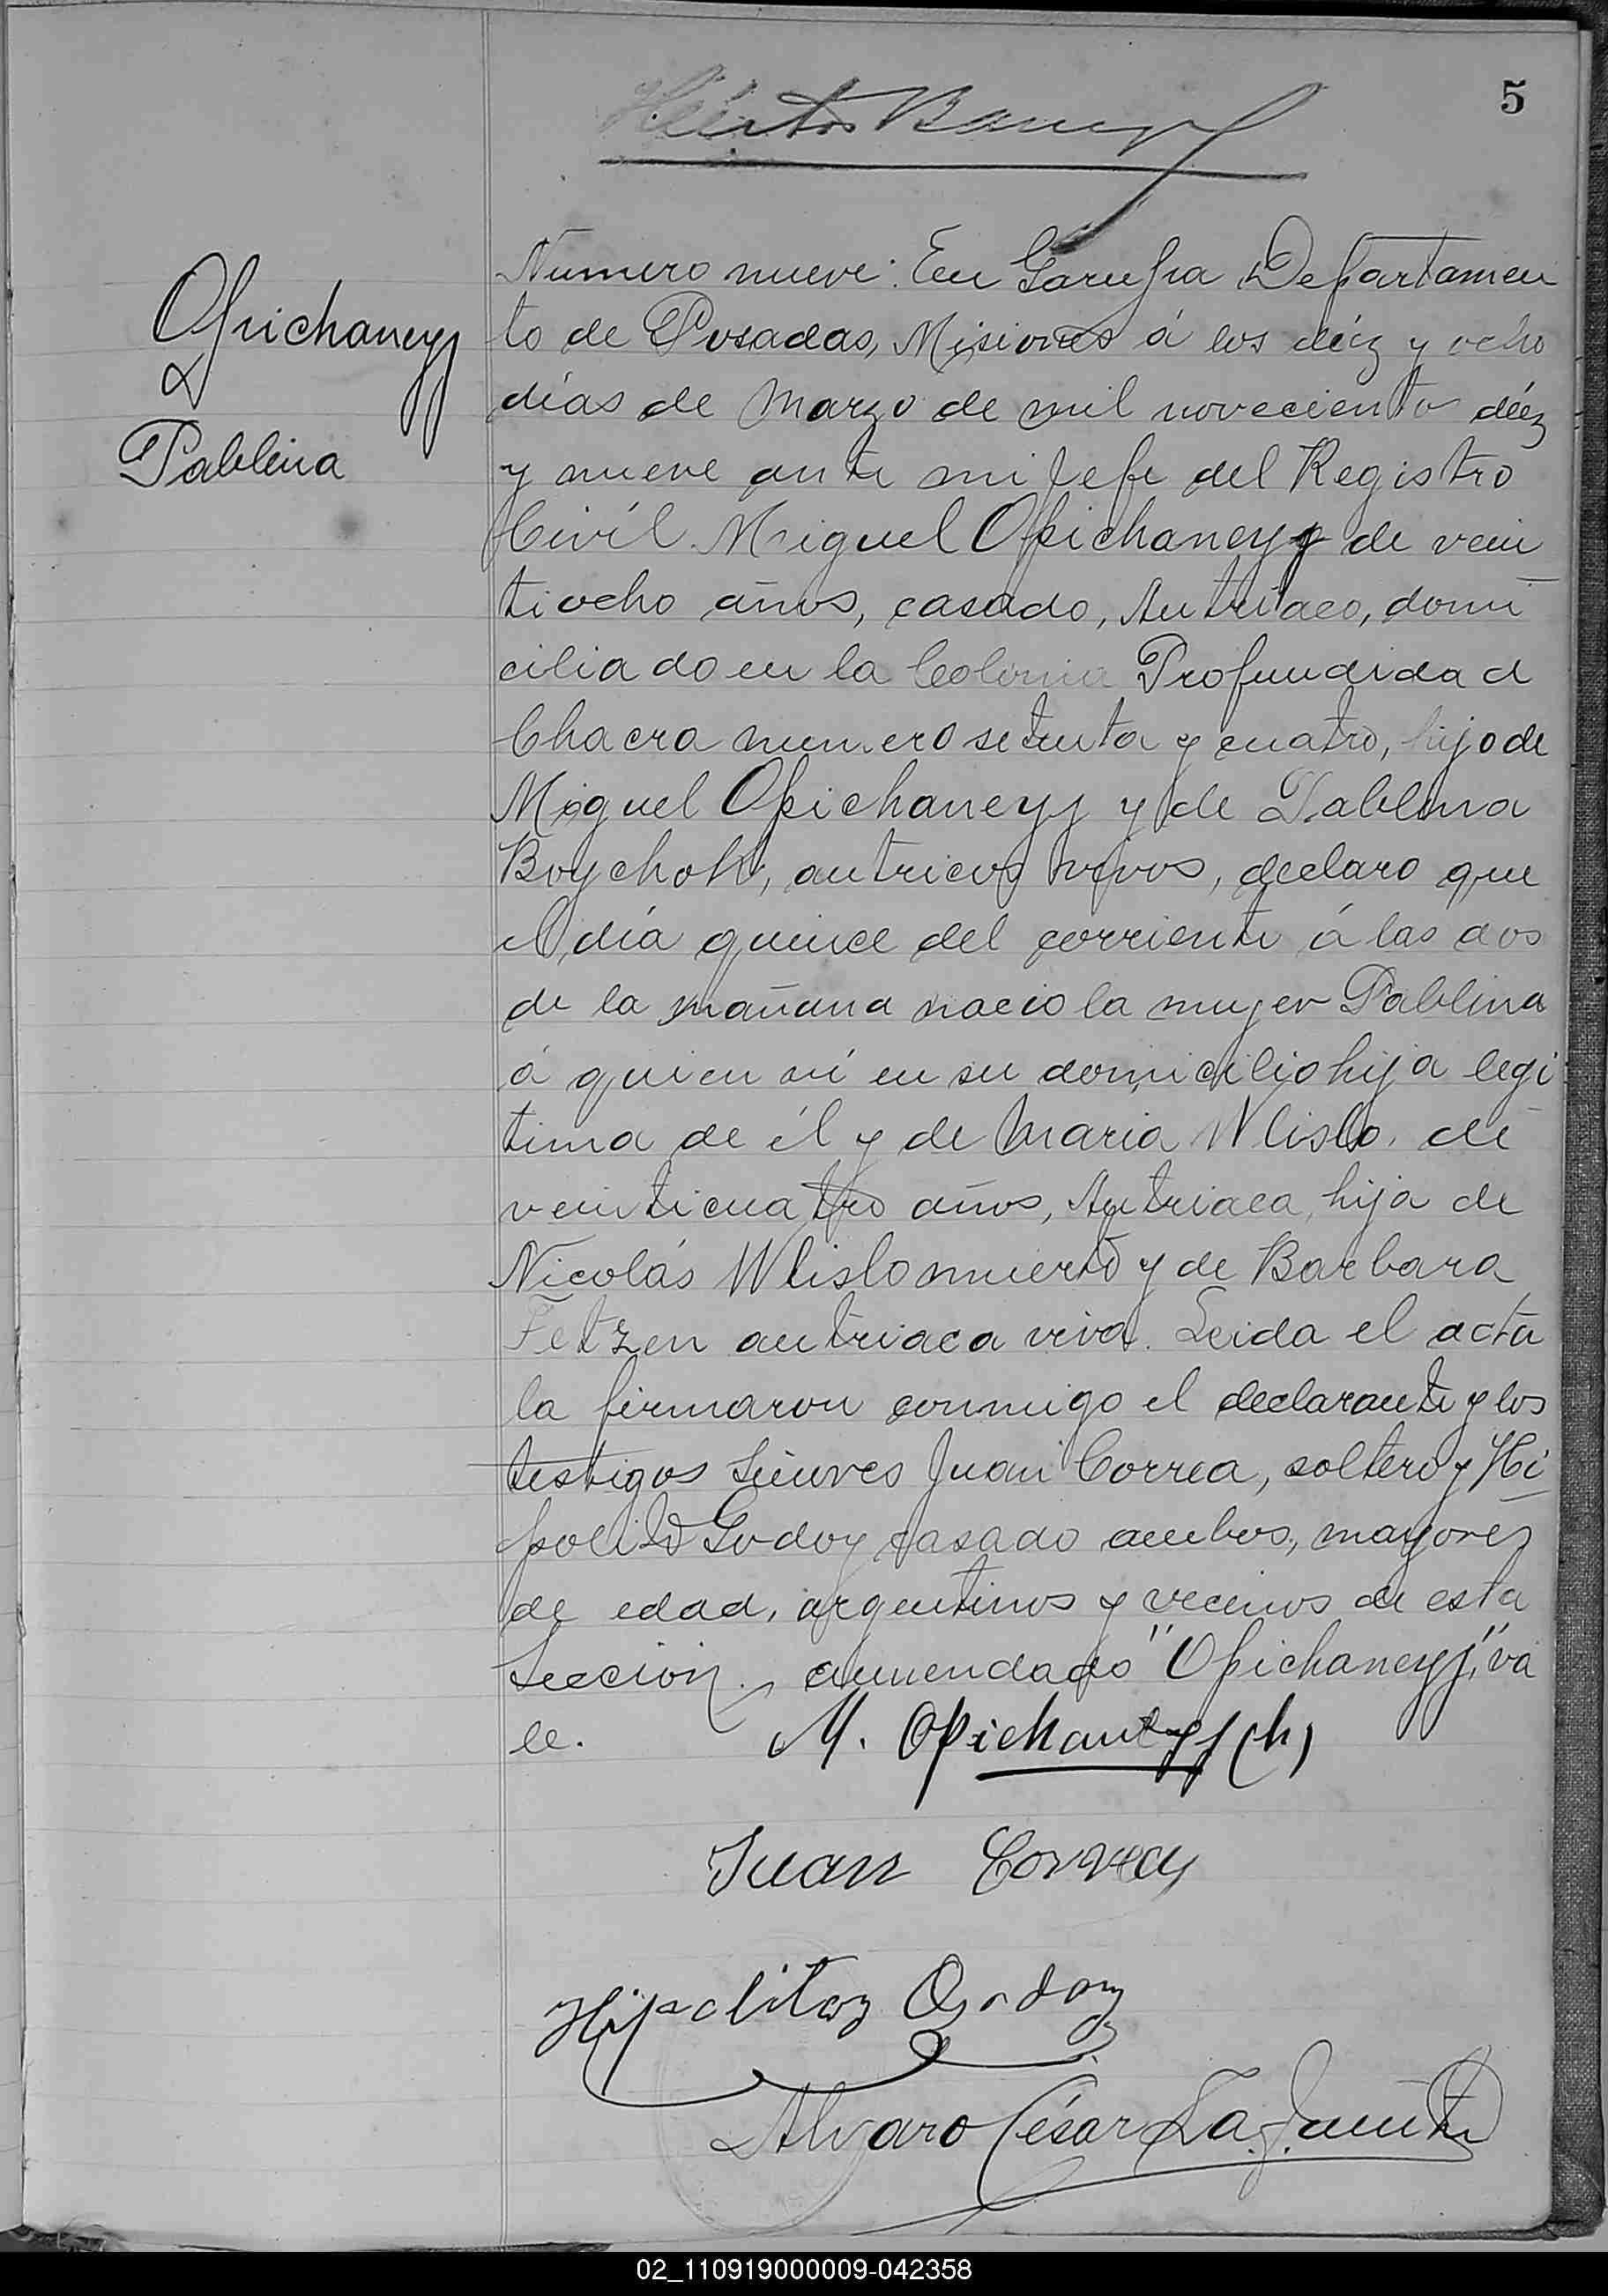 5
Opichaneyj
Pablina
Numero nueve: En Garupa Departamen
to de Posadas, Misiones á los diéz y ocho
días de Marzo de mil noveciento diéz
y nueve ante mi Jefe del Registro
Civíl Miguel Opichaneyj de vein
tiocho años, casado, Autriaco, domi
ciliado en la Colonia Profundidad
Chacra numero setenta y cuatro, hijo de
Miguel Opichaneyj y de Pablina
Boychok, autricos vivos, declaro que
el día quince del corriente á las dos
de la mañana nacio la mujer Pablina
á quien ví en su domicilio hija legi
tima de él y de Maria Wlislo de
veinticuatro años, Autriaca, hija de
Nicolás Wlislo muerto y de Barbara
Fetzen autriaca viva. Leida el acta
la firmaron conmigo el declarante y los
testigos Señores Juan Correa, soltero y Hi
polito Godoy casado ambos, mayores
de edad, argentinos y vecinos de esta
Sección. enmendado "Opichaneyj" va
le.
M. Opichaneyj (h)
Juan Correa
Hipolito Godoy
Alvaro César
02_110919000009-042358